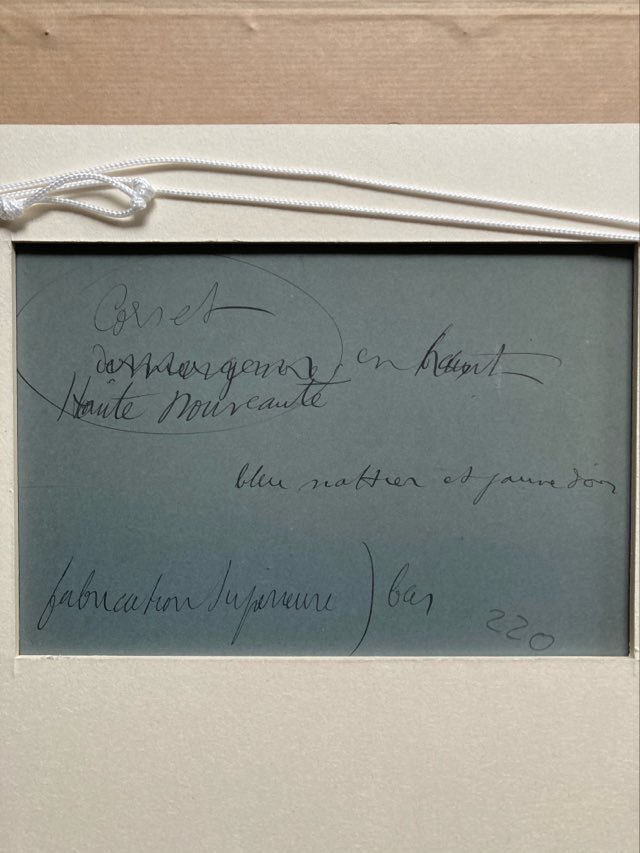 Corset
en haut
Haute Nouveauté
bleu nattier et jaune d'or
fabrication Supérieure ) bas
220